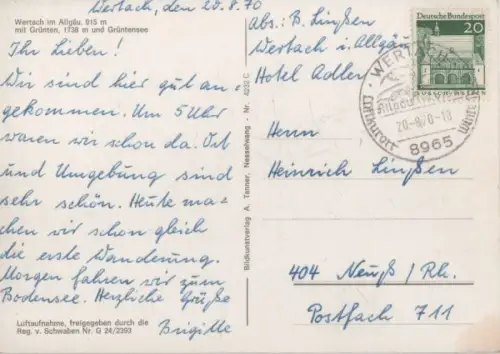 Wertach, den 20.8.70
Wertach im Allgäu, 915 m
mit Grünten, 1738 m und Grüntensee
Ihr Lieben!
Wir sind hier gut an-
gekommen. Um 5 Uhr
waren wir schon da. Ort
und Umgebung sind
sehr schön. Heute ma-
chen wir schon gleich
die erste Wanderung.
Morgen fahren wir zum
Bodensee. Herzliche Grüße
Brigitte
Luftaufnahme, freigegeben durch die
Reg. v. Schwaben Nr. G 24/2393
Bildkunstverlag A. Tanner, Nesselwang - Nr. 4232 C
Abs.: B. Linßen
Wertach i. Allgäu
Hotel Adler
Deutsche Bundespost
20
WERTACH
Allgäu
20-8.70-18
Luftkurort
8965
Herrn
Heinrich Linßen
404 Neuß/Rh.
Postfach 711